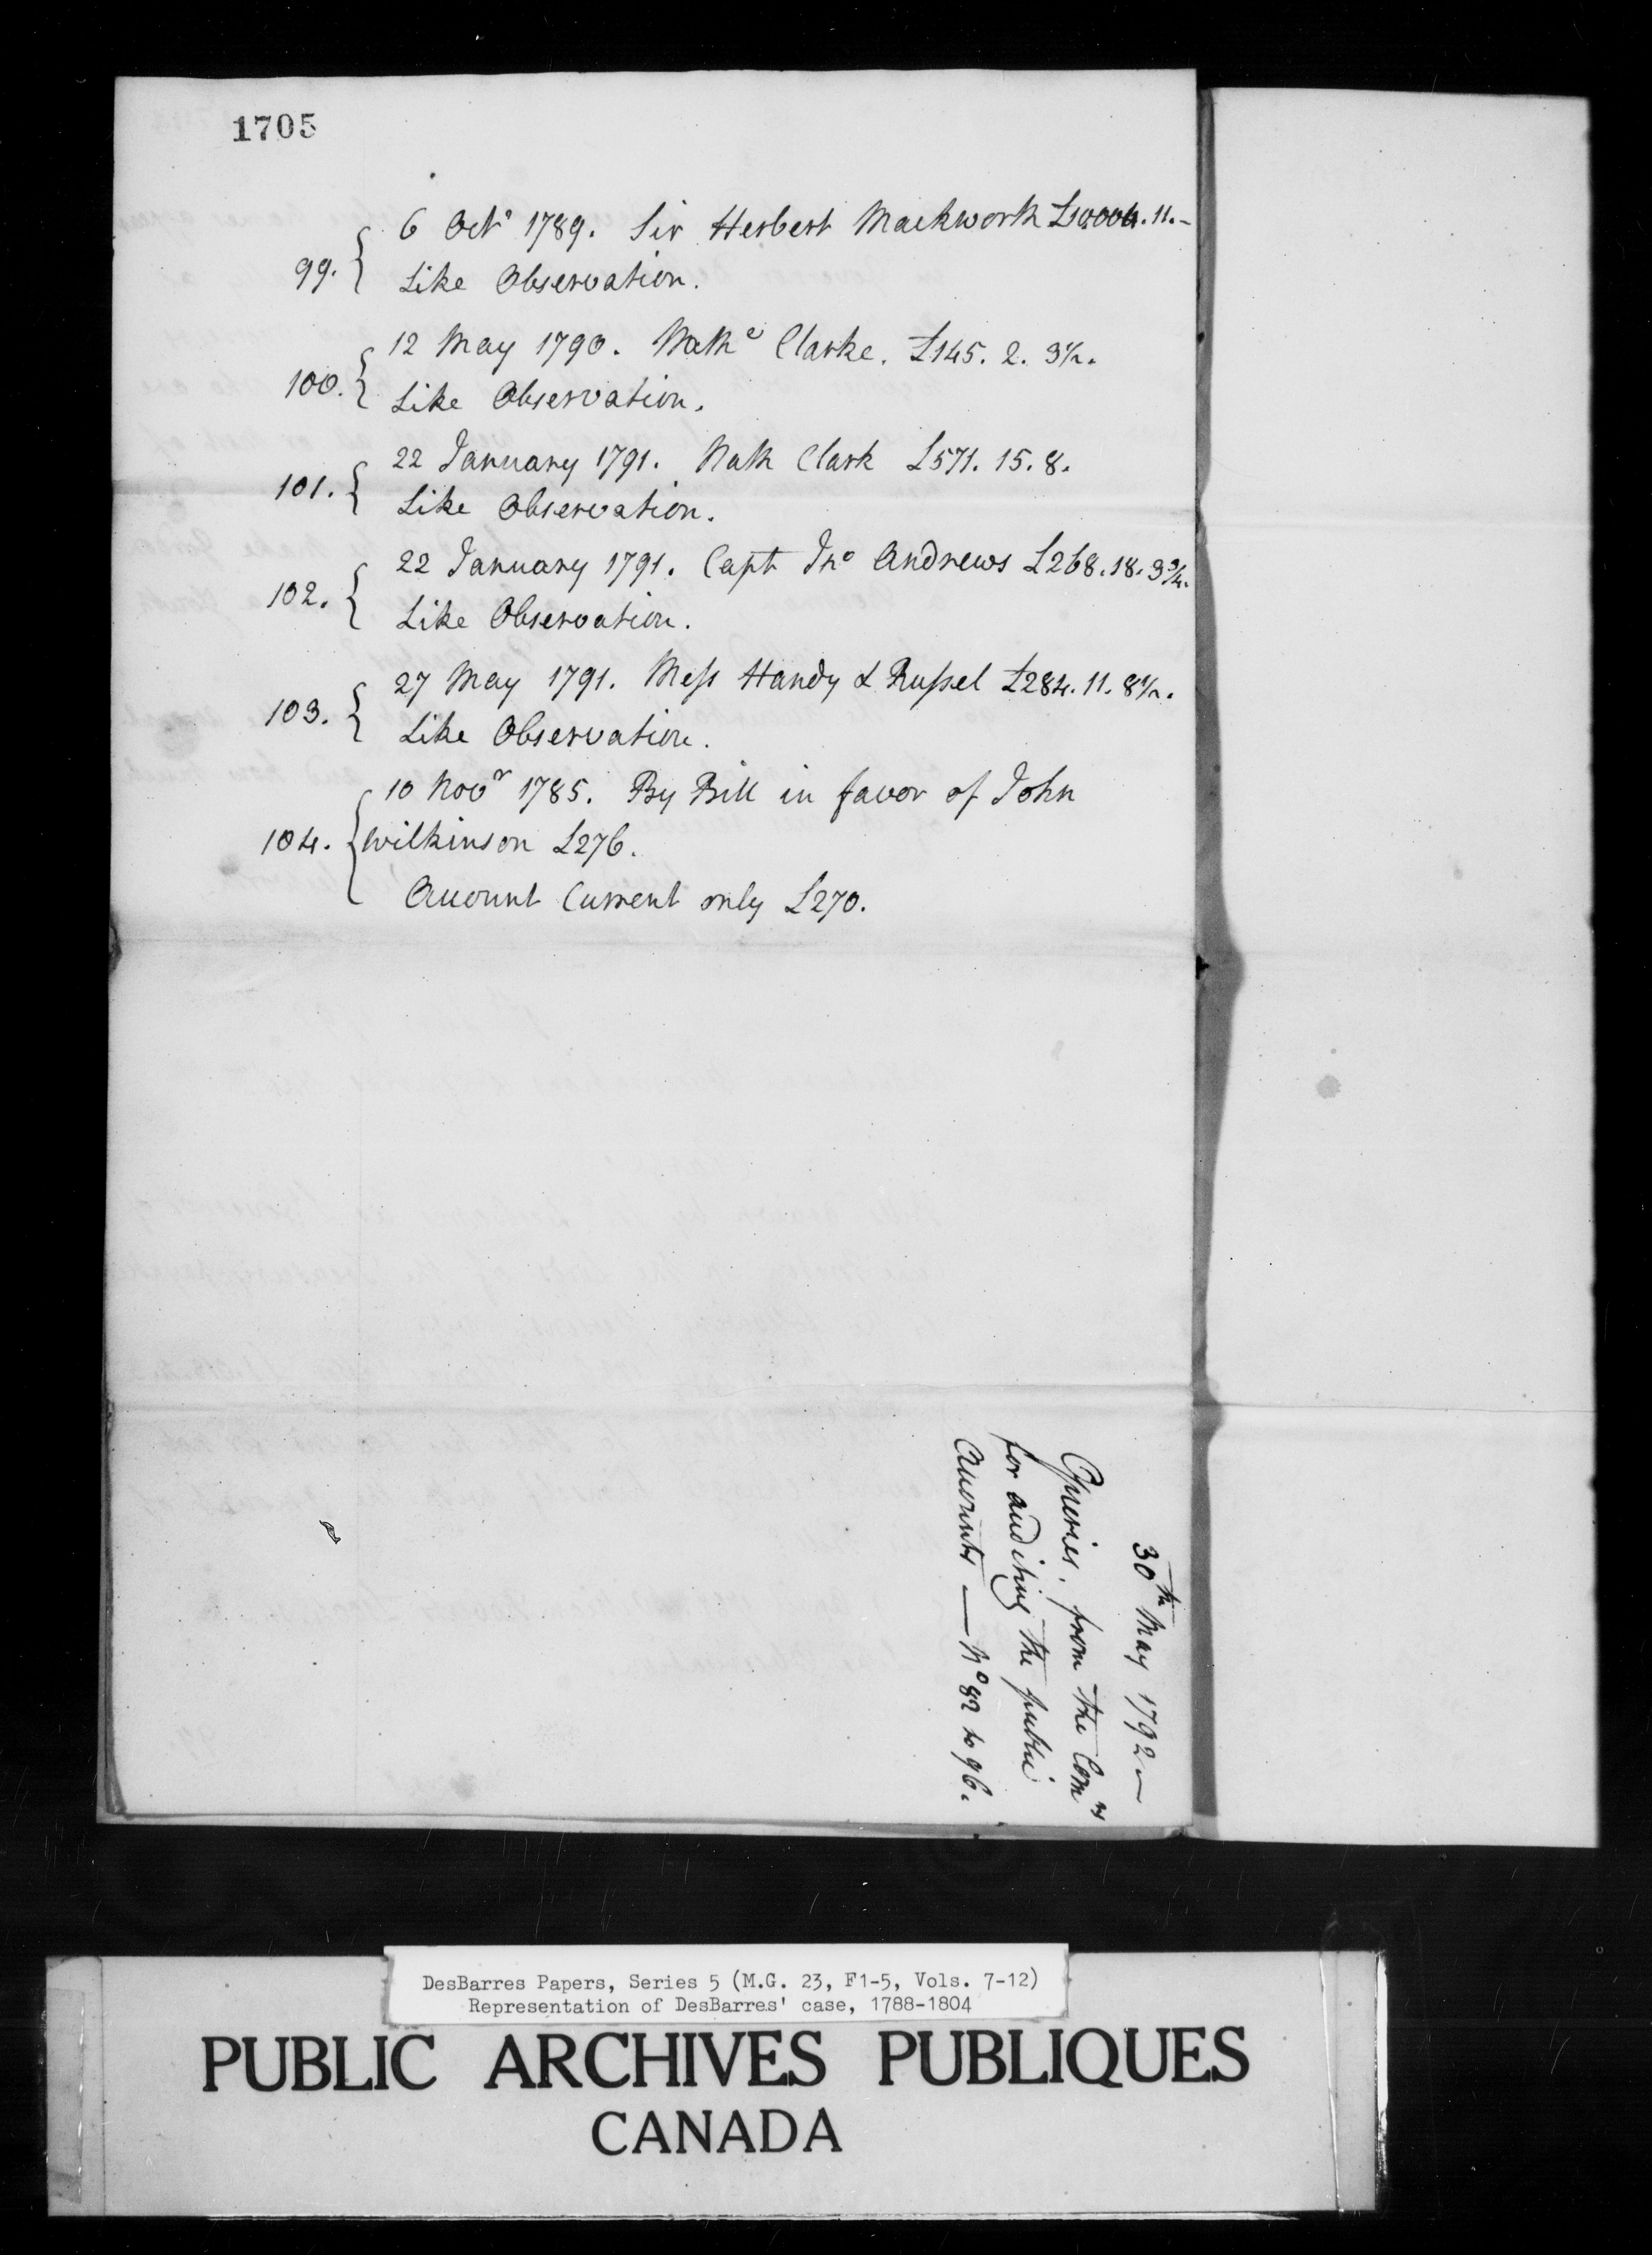 1705
6 Octr 1789. Sir Herbert Mackworth .11.-
99. { Like Observation.
12 May 1790. Clarke. £145. 2. 3½.
100. { Like Observation.
22 January 1791. Nath Clark £571. 15. 8.
101. { Like Observation.
22 January 1791. Capt Jno Andrews £268. 18. 3¾.
102. { Like Observation.
27 May 1791. Mess Handy & Russel £284. 11. 8½.
103. { Like Observation.
10 Novr 1785. By Bill in favor of John
104. { Wilkinson £276.
Account Current only £270.
30th May 1792 —
Queries, from the Comrs
for auditing the public
Accounts — No 82 to 96.
DesBarres Papers, Series 5 (M.G. 23, F1-5, Vols. 7-12)
Representation of DesBarres' case, 1788-1804
PUBLIC ARCHIVES PUBLIQUES
CANADA